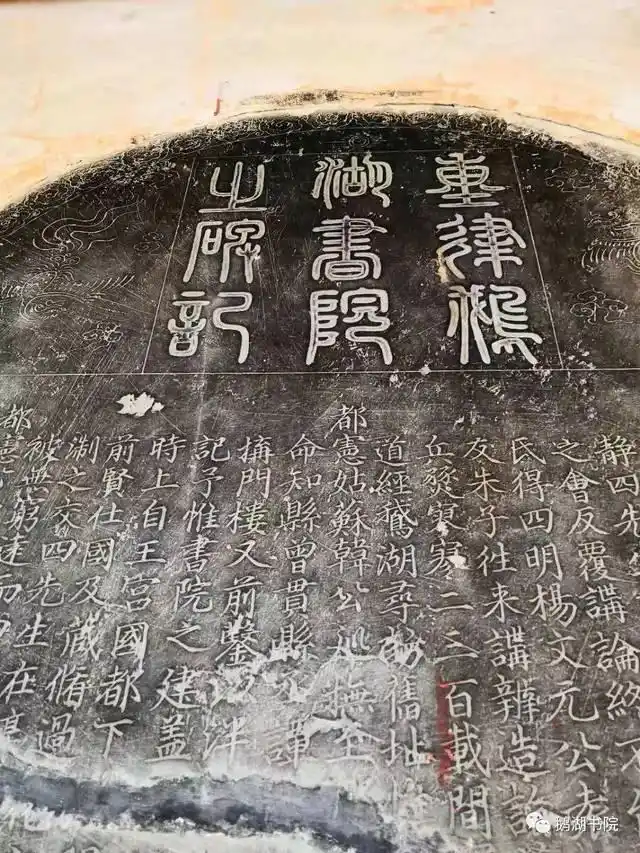 重建鵝
湖書院
之碑記
静四先
之會反覆講論終不
氏得四明楊文元公
友朱子往来講辨造詣
二三百載間
道經鵝湖尋訪舊址
都憲姑蘇韓公巡撫
命知縣曾貫縣丞譚
搆門樓又前鑿
記予惟書院之建盖
時上自王宫國都下
前賢仕國及藏脩過
淛之交四先生在
被無窮達而
都憲
鹅湖书院